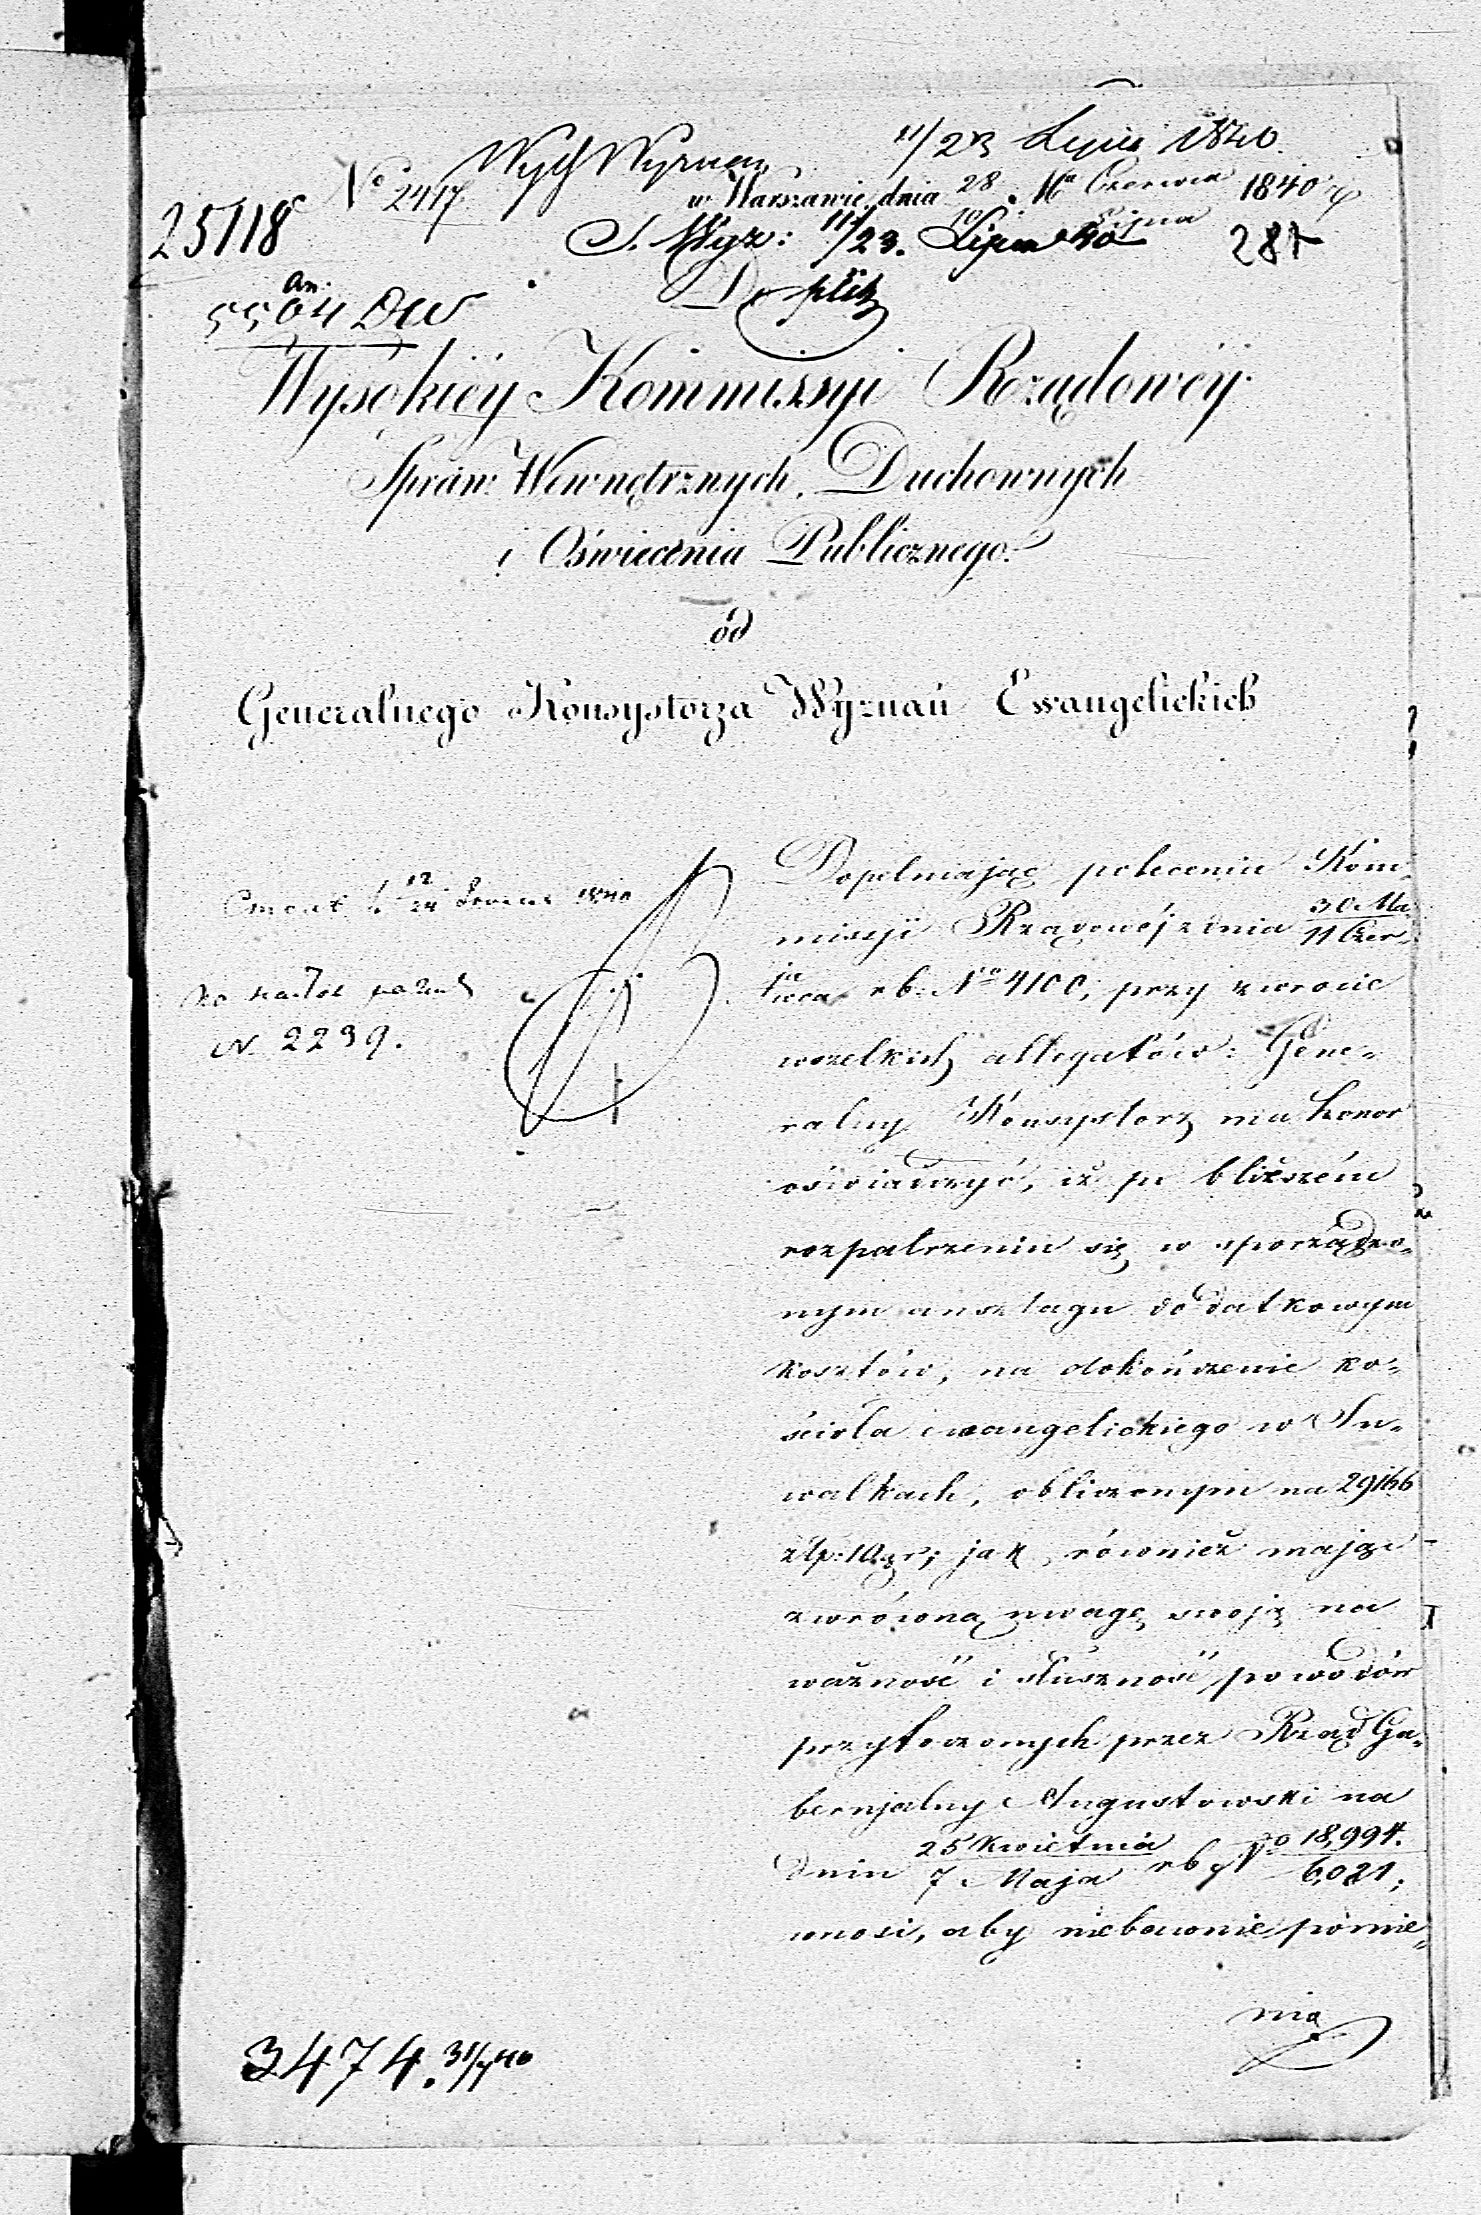 11/23 Lipca 1840.
Wydź Wyznań
No 2417
w Warszawie, dnia 28 Ma Czerwca 1840 r.
10 Lipca
25118
S. Wyz: 11/23. Lipca 40
287
5504 DW
Wysokiéy Kommissyi Rządowéy
Spraw Wewnętrznych, Duchownych
i Oświecenia Publicznego.
od
Generalnego Konsystorza Wyznań Ewangelickich
N. 2239.
Dopełniając polecenia Kom-
missji Rządowéj z dnia 30 Ma-/11 Czer-
ja/wca r b. No 4100, przy zwrocie
wszelkich allegatów: Gene-
ralny Konsystorz ma honor
oświadczyć, iż po bliższém
rozpatrzeniu się w sporządzo-
nym anszlagu dodatkowym
kosztów, na dokończenie ko-
ścioła ewangelickiego w Su-
wałkach, obliczonym na 29166
złp: 10 gr; jak również mając
zwróconą uwagę swoją na
ważność i słuszność powodów
przytoczonych przez Rząd Gu-
bernjalny Augustowski na
dniu 25 Kwietnia/7 Maja r b No 18,994./6,021;
wnosi, aby niebawnie pomie-
nio
3474. 31/7 40